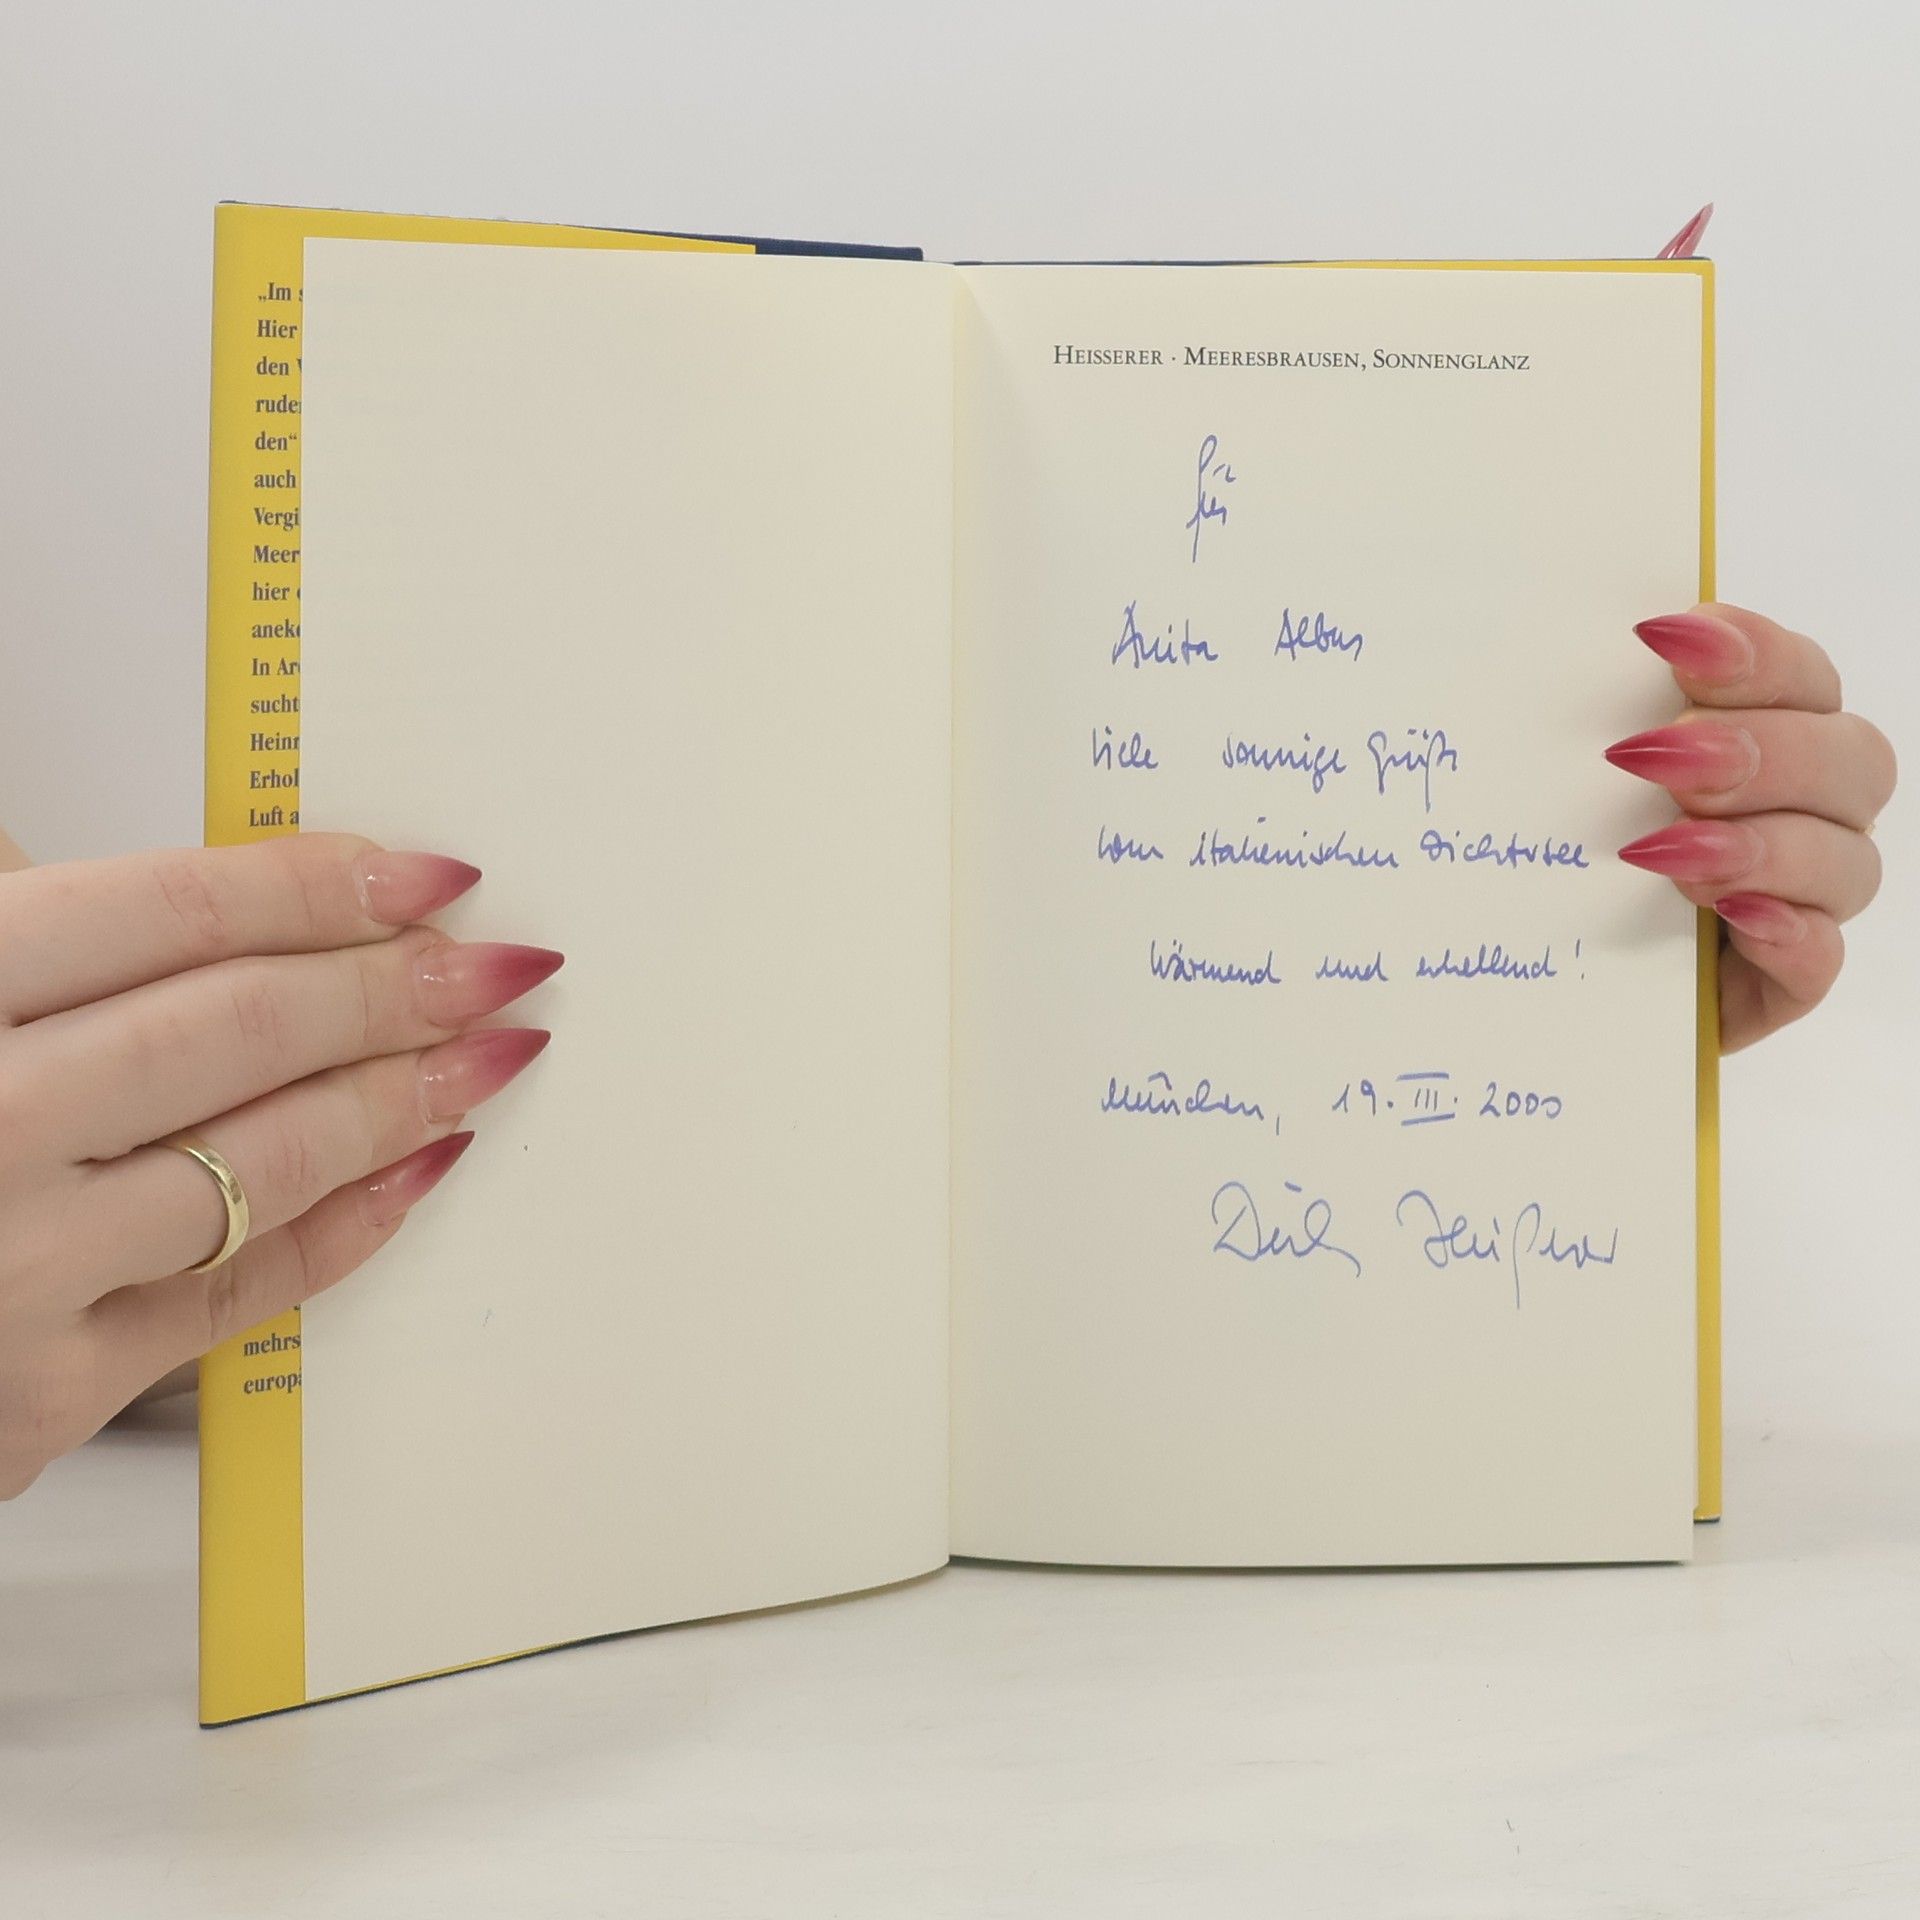 „Im
Hier
den
rude
den“
auch
Vergi
Meer
hier
anek
In Ar
sucht
Heinr
Erhol
Luft a
mehrs
europ
HEISSERER · MEERESBRAUSEN, SONNENGLANZ
für
Anita Albus
Viele sonnige Grüße
vom italienischen Dichtersee
Wärmend und erhellend!
München, 19. III. 2000
Dirk Heißerer